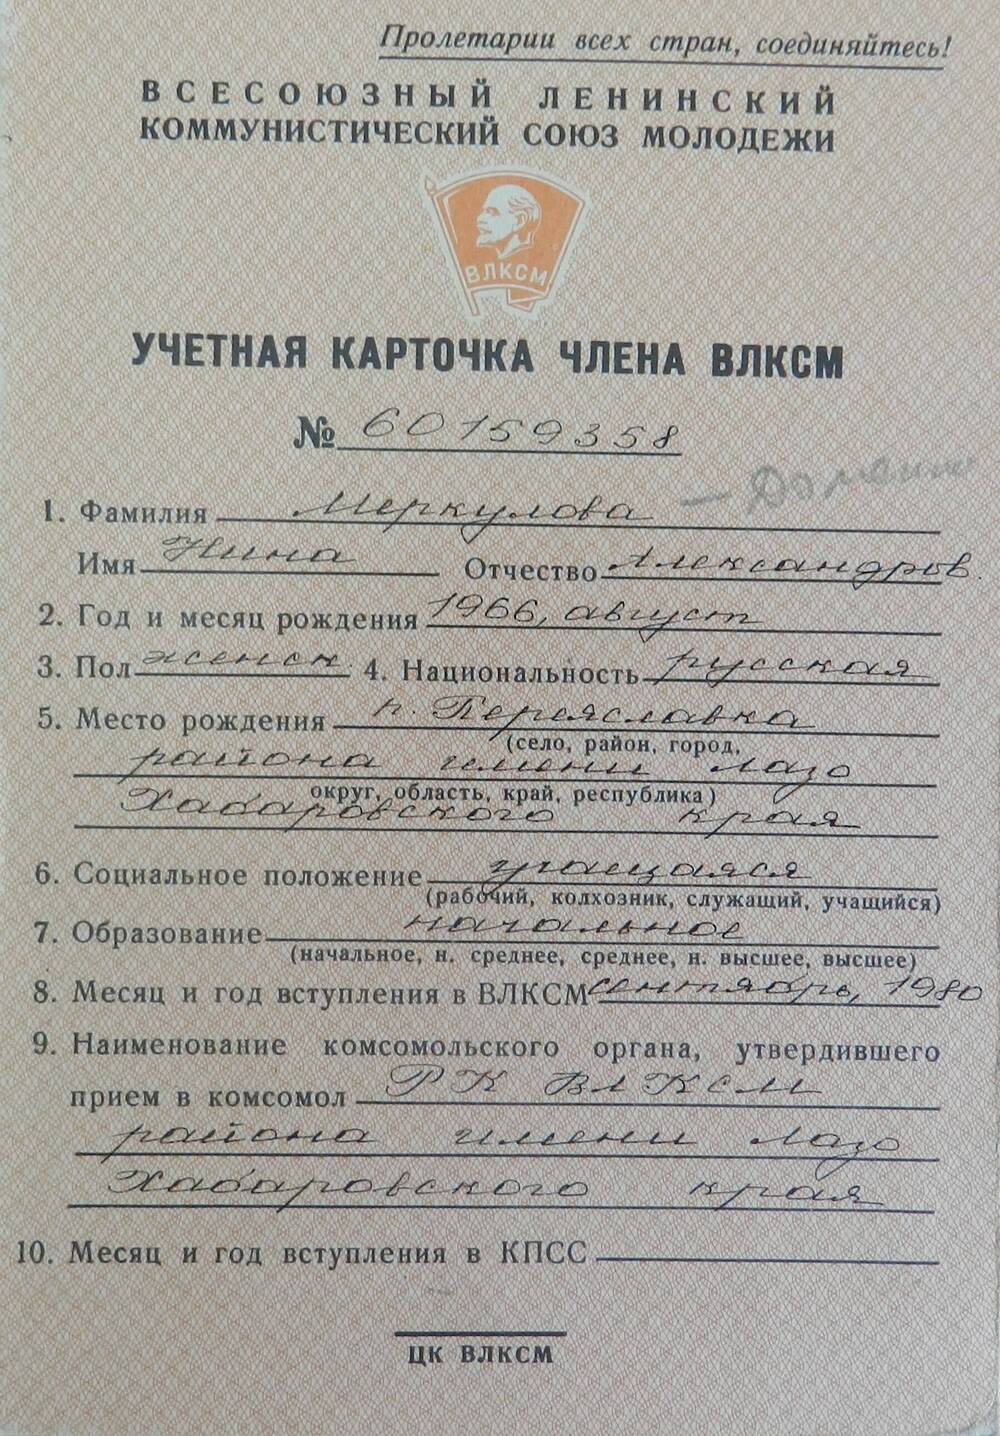 Пролетарии всех стран, соединяйтесь!
ВСЕСОЮЗНЫЙ ЛЕНИНСКИЙ
КОММУНИСТИЧЕСКИЙ СОЮЗ МОЛОДЕЖИ
ВЛКСМ
УЧЕТНАЯ КАРТОЧКА ЧЛЕНА ВЛКСМ
№ 60159358
1. Фамилия Меркулова —
Имя Нина Отчество Александров.
2. Год и месяц рождения 1966, август
3. Пол женск. 4. Национальность русская
5. Место рождения п. Переяславка
(село, район, город,
района имени Лазо
округ, область, край, республика)
Хабаровского края
6. Социальное положение учащаяся
(рабочий, колхозник, служащий, учащийся)
7. Образование начальное
(начальное, н. среднее, среднее, н. высшее, высшее)
8. Месяц и год вступления в ВЛКСМ сентябрь, 1980
9. Наименование комсомольского органа, утвердившего
прием в комсомол РК ВЛКСМ
района имени Лазо
Хабаровского края
10. Месяц и год вступления в КПСС
ЦК ВЛКСМ